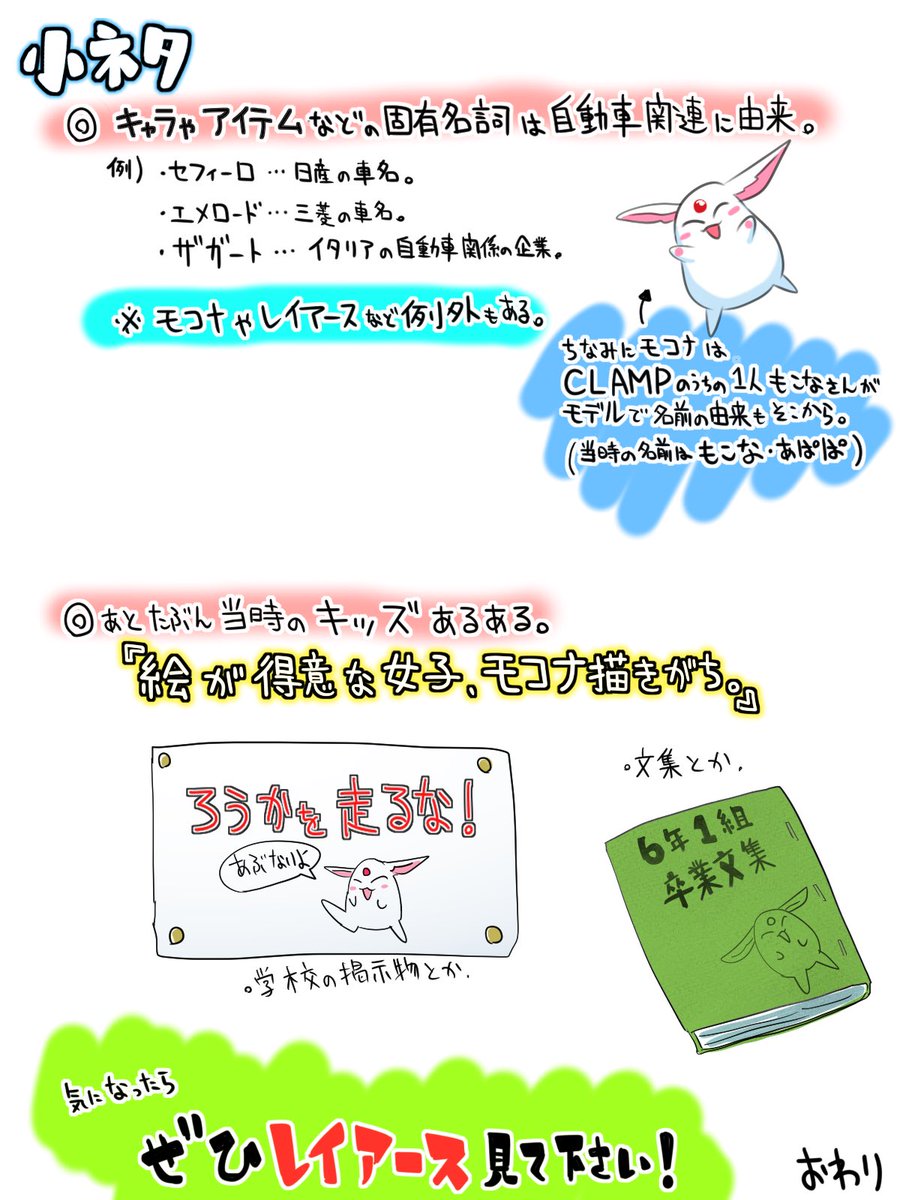 小ネタ
◎ キャラやアイテムなどの固有名詞は自動車関連に由来。
例) ・セフィーロ … 日産の車名。
・エメロード … 三菱の車名。
・ザガート … イタリアの自動車関係の企業。
※ モコナやレイアースなど例外もある。
ちなみにモコナは
CLAMPのうちの1人もこなさんが
モデルで名前の由来もそこから。
(当時の名前はもこな・あぱぱ)
◎あとたぶん当時のキッズあるある。
『絵が得意な女子、モコナ描きがち。』
ろうかを走るな!
あぶないよ
。学校の掲示物とか.
。文集とか.
6年1組
卒業文集
気になったら
ぜひレイアース見て下さい!
おわり